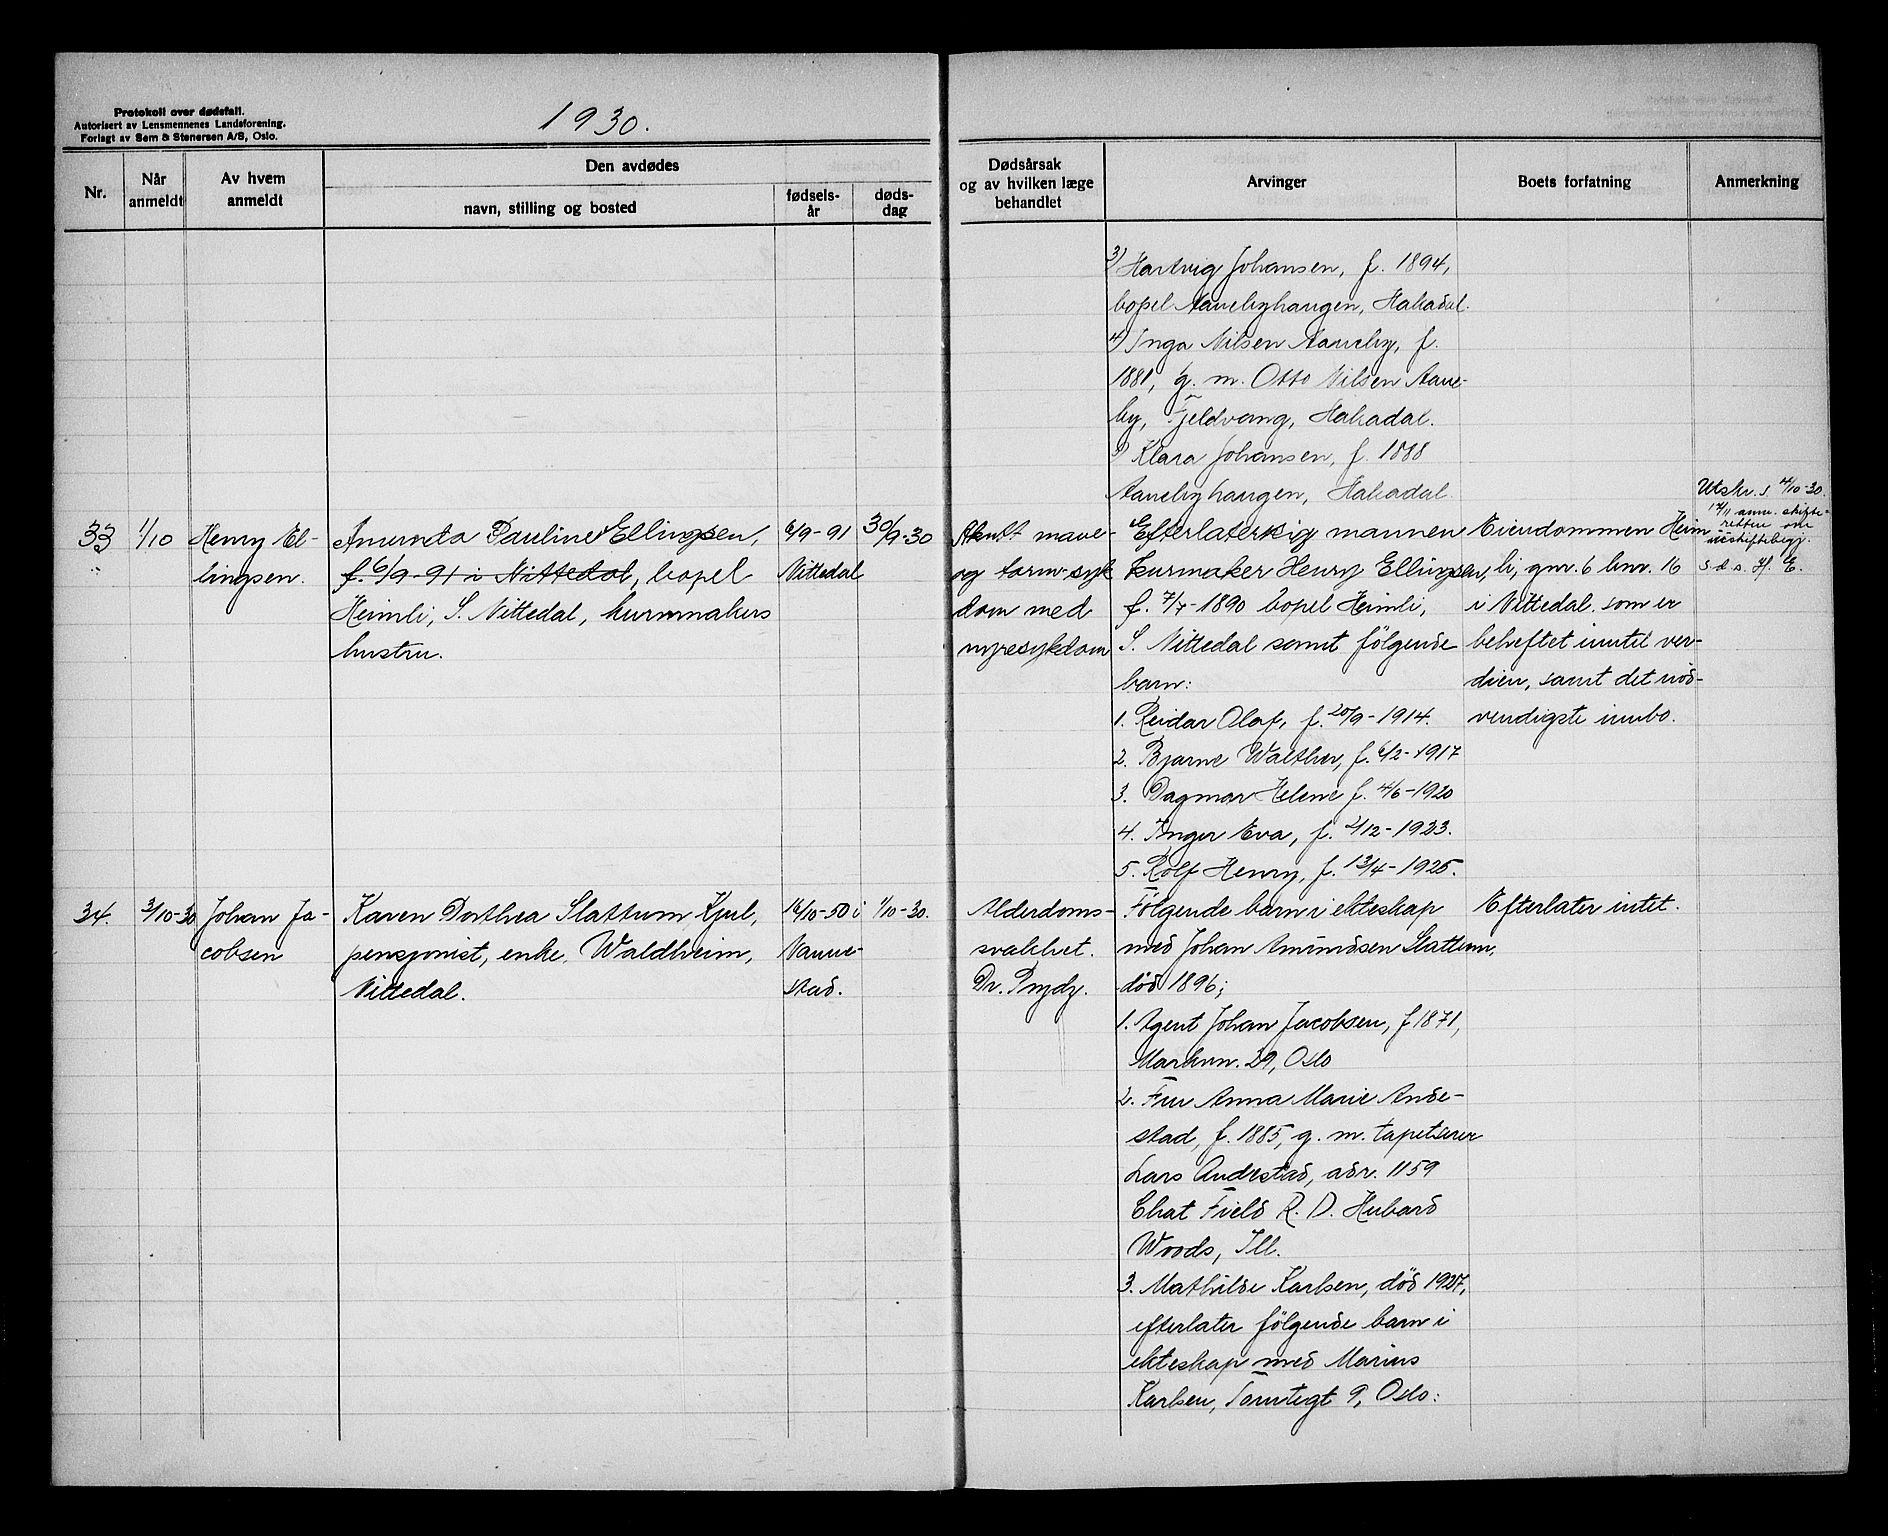 Protokoll over dødsfall.
Autorisert av Lensmennenes Landsforening.
Forlagt av Sem & Stenersen A/S, Oslo.
1930.
Nr.
Når anmeldt
Av hvem anmeldt
Den avdødes
navn, stilling og bosted
fødsels-
år
døds-
dag
Dødsårsak
og av hvilken læge
behandlet
Arvinger
Boets forfatning
Anmerkning
3) Hartvig Johansen, f. 1894,
bopel Aanebyhaugen, Hakadal.
4) Inga Nilsen Aaneby, f.
1881, g. m. Otto Nilsen Aane-
by, Fjeldvang, Hakadal.
5) Klara Johansen, f. 1888
Aanebyhaugen, Hakadal.
33
1/10
Henry El-
lingsen.
Amunda Pauline Ellingsen,
f. 6/9-91 i Nittedal, bopel
Heimli, S. Nittedal, burmakers
hustru.
6/9-91
Nittedal
30/9-30
Akutt mave-
og tarm-syk
dom med
nyresykdom
Efterlater sig mannen
burmaker Henry Ellingsen,
f. 7/7-1890 bopel Heimli,
S. Nittedal samt følgende
barn:
1. Reidar Olaf, f. 20/9-1914.
2. Bjarne Walther, f. 6/2-1917
3. Dagmar Helene f. 4/6-1920
4. Inger Eva, f. 2/12-1923.
5. Rolf Henry, f. 13/4-1925.
Eiendommen Heim
li, gnr. 6 bnr. 16
i Nittedal. som er
beheftet inntil ver-
dien, samt det nød-
vendigste innbo.
Utskr. s 4/10-30.
17/11 anm. skifte-
retten om
uskiftebegj.
s d s. H. E.
34.
3/10-30
Johan Ja-
cobsen
Karen Dorthea Slattum Kjul,
pensjonist, enke. Waldheim,
Nittedal.
16/10-50 i
Nanne-
stad.
1/10-30.
Alderdoms-
svakhet.
Dr. Prydz.
Følgende barn i ekteskap
med Johan Amundsen Slattum,
død 1896;
1. Agent Johan Jacobsen, f 1871,
Markvn. 29, Oslo
2. Fru Anna Marie Ande-
stad, f. 1885, g. m. tapetserer
Lars Andestad, adr. 1159
Chat Field R. D. Hubard
Woods, Ill.
3. Mathilde Karlsen, død 1927,
efterlater følgende barn i
ekteskap med Marius
Karlsen, Tomtegt 9, Oslo:
Efterlater intet.